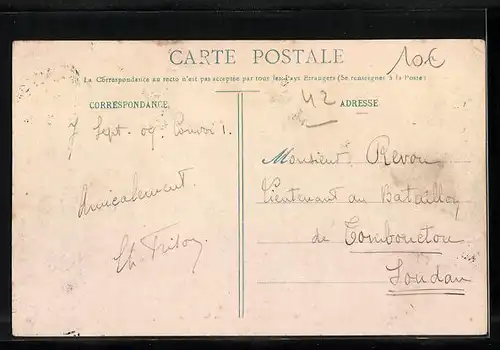 CARTE POSTALE
10€
La Correspondance au recto n'est pas acceptée par tous les Pays Etrangers (Se renseigner à la Poste)
42
CORRESPONDANCE
ADRESSE
7 Sept. 09. Convoi 1.
Monsieur Revon
Amicalement
Lieutenant au Bataillon
de Tombouctou
Soudan